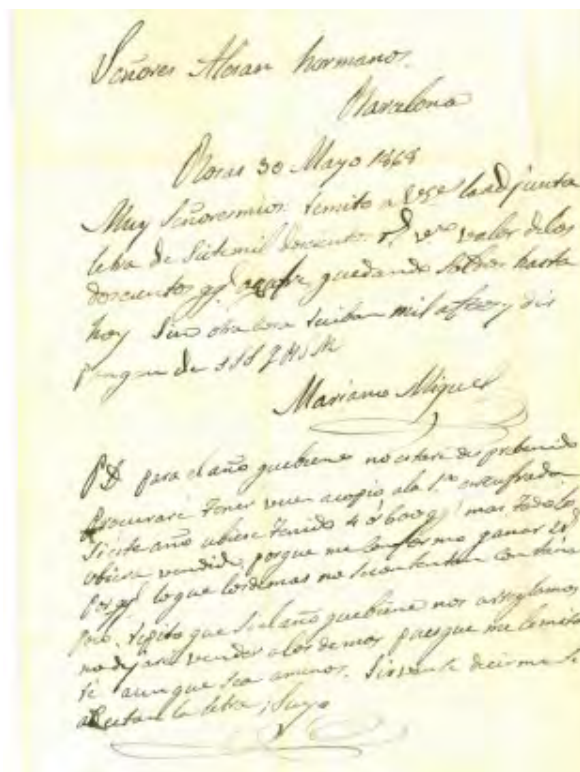 Señores Alsian hermanos.
Barcelona
Rosas 30 Mayo 1868
Muy Señores mios: remito a Vses la adjunta
letra de Siete mil doscientos rs von valor delos
doscientos qqs azufre, quedando saldos hasta
hoy Sin otra cosa reciban mil afteos y dis
pongan de SSS Q B S M
Mariano Miquel
PD para el año que biene no estare desprebenido
procurare tener buen acopio ala 1ra encufrada
Si este año ubiese tenido 4 ó 600 qqs mas, todo lo
ubiera vendido, porque me conformo ganar 2 rs
por qql lo que los demas no se contentan con tan
poco, repito que si el año que biene nos arreglamos
no dejare vender alos demas pues que me limita
re aunque sea a menos. Sirvanse decirme si
acectan la letra; Suyo